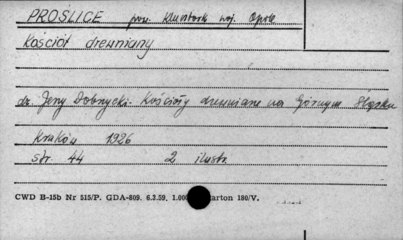 PROŚLICE pow. Kluczbork woj. Opole
Kościół drewniany
dr. Jerzy Dobrzycki. Kościoły drewniane na Górnym Śląsku
Kraków 1926
str. 44 2 ilustr.
CWD B-15b Nr 515/P. GDA-809. 6.3.59. 1.000 karton 180/V.